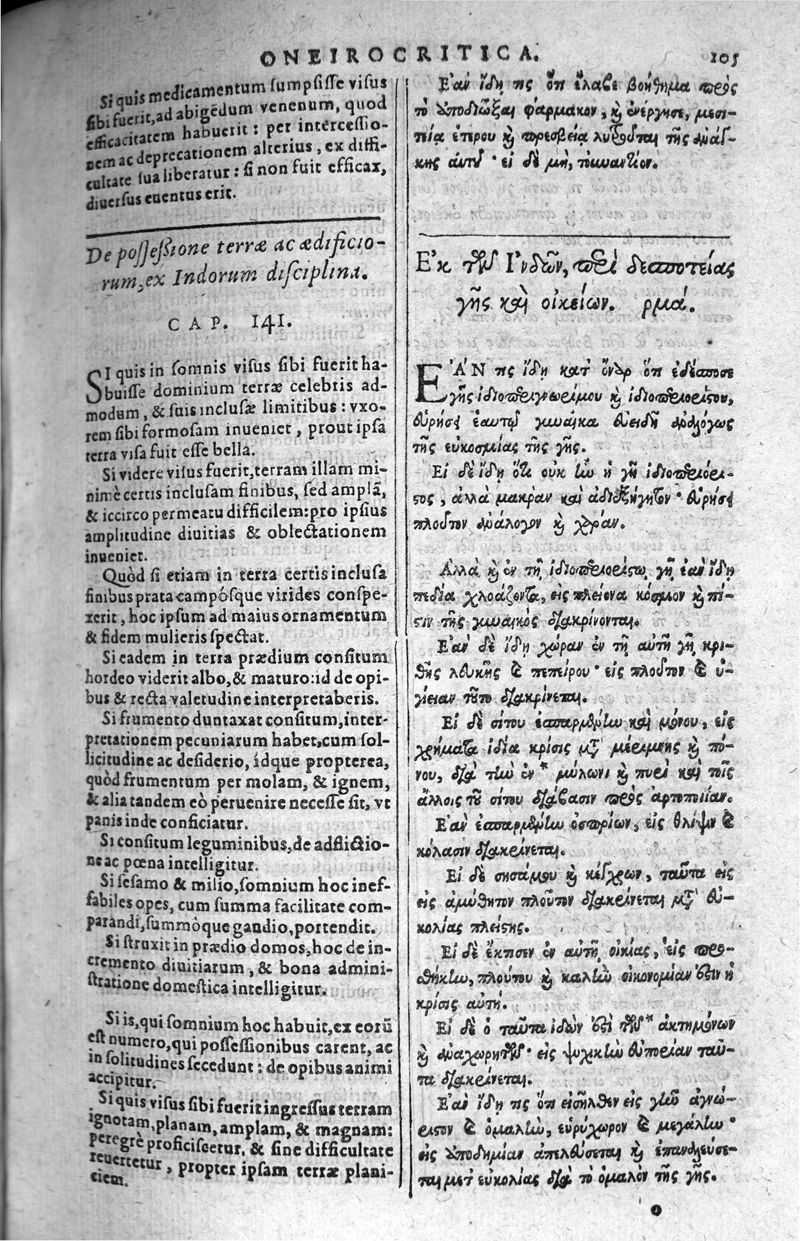 ONEIROCRITICA. 105
Si quis medicamentum sumpsisse visus
sibi fuerit, ad abigẽdum venenum, quod
efficacitatem habuerit: per intercessio-
nem ac deprecationem alterius, ex diffi-
cultate sua liberatur: si non fuit efficax,
diuersus euentus erit.
De possessione terræ ac ædificio-
rum, ex Indorum disciplina.
CAP. 141.
SI quis in somnis visus sibi fuerit ha-
buisse dominium terræ celebris ad-
modum, & suis inclusæ limitibus: vxo-
rem sibi formosam inueniet, prout ipsa
terra visa fuit esse bella.
Si videre visus fuerit, terram illam mi-
nimè certis inclusam finibus, sed amplã,
& iccirco permeatu difficilem: pro ipsius
amplitudine diuitias & oblectationem
inueniet.
Quòd si etiam in terra certis inclusa
finibus prata campósque virides conspe-
xerit, hoc ipsum ad maius ornamentum
& fidem mulieris spectat.
Si eadem in terra prædium consitum
hordeo viderit albo, & maturo: id de opi-
bus & recta valetudine interpretaberis.
Si frumento duntaxat consitum, inter-
pretationem pecuniarum habet, cum sol-
licitudine ac desiderio, idque propterea,
quòd frumentum per molam, & ignem,
& alia tandem eò peruenire necesse sit, vt
panis inde conficiatur.
Si consitum leguminibus, de adflictio-
ne ac pœna intelligitur.
Si sesamo & milio, somnium hoc inef-
fabiles opes, cum summa facilitate com-
parandi, summòque gaudio, portendit.
Si struxit in prædio domos, hoc de in-
cremento diuitiarum, & bona admini-
stratione domestica intelligitur.
Si is, qui somnium hoc habuit, ex eorũ
est numero, qui possessionibus carent, ac
in solitudines secedunt: de opibus animi
accipitur.
Si quis visus sibi fuerit ingressus terram
ignotam, planam, amplam, & magnam:
peregrè proficiscetur, & sine difficultate
reuertetur, propter ipsam terræ plani-
ciem.
Ἐὰν ἴδῃ τις ὅτι ἔλαβε βοήθημα πρὸς
τὸ ὑποδιῶξαι φάρμακον, καὶ ἐνέργησε, μεσι-
τείᾳ ἑτέρου καὶ πρεσβείᾳ λυθήσεται τῆς ἀνάγ-
κης αὐτοῦ· εἰ δὲ μὴ, τοὐναντίον.
Ἐκ τῶν Ἰνδῶν, περὶ δεσποτείας
γῆς καὶ οἰκείων. ρμά.
ἘΑΝ τις ἴδῃ κατ᾽ ὄναρ ὅτι ἐδέσποσε
γῆς ἰδιοπεριγνωρίμου καὶ ἰδιοπεριορίστου,
εὑρήσει ἑαυτῷ γυναῖκα εὐειδῆ ἀναλόγως
τῆς εὐκοσμίας τῆς γῆς.
Εἰ δὲ ἴδῃ ὅτι οὐκ ἦν ἡ γῆ ἰδιοπεριόρι-
στος, ἀλλὰ μακρὰν καὶ ἀδιεξήγητον· εὑρήσει
πλοῦτον ἀνάλογον καὶ χαράν.
Ἀλλὰ καὶ ἐν τῇ ἰδιοπεριορίστῳ γῇ ἐὰν ἴδῃ
πεδία χλοάζοντα, εἰς πλείονα κόσμον καὶ πί-
στιν τῆς γυναικὸς διακρίνονται.
Ἐὰν δὲ ἴδῃ χώραν ἐν τῇ αὐτῇ γῇ κρι-
θῆς λευκῆς καὶ πεπείρου· εἰς πλοῦτον καὶ ὑ-
γίειαν τοῦτο διακρίνεται.
Εἰ δὲ σίτου ἐσπαρμένην καὶ μόνου, εἰς
χρήματα ἰδία κρίσις μετὰ μερίμνης καὶ πό-
νου, διὰ τὴν ἐν* μύλωνι καὶ πυρὶ καὶ τοῖς
ἄλλοις τοῦ σίτου διάβασιν πρὸς ἀρτοποιΐαν.
Ἐὰν ἐσπαρμένην ὀσπρίων, εἰς θλῖψιν καὶ
κόλασιν διακρίνεται.
Εἰ δὲ σησάμου καὶ κέγχρων, ταῦτα εἰς
εἰς ἀμύθητον πλοῦτον διακρίνεται μετ᾽ εὐ-
κολίας πλείστης.
Εἰ δὲ ἔκτισεν ἐν αὐτῇ οἰκίας, εἰς προσ-
θήκην, πλούτου καὶ καλὴν οἰκονομίαν ἐστὶν ἡ
κρίσις αὐτή.
Εἰ δὲ ὁ ταῦτα ἰδὼν ἐστὶ τῶν* ἀκτημόνων
καὶ ἀναχωρητῶν· εἰς ψυχικὴν εὐπορίαν ταῦ-
τα διακρίνεται.
Ἐὰν ἴδῃ τις ὅτι εἰσῆλθεν εἰς γῆν ἀγνώ-
ριστον καὶ ὁμαλὴν, εὐρύχωρον καὶ μεγάλην·
εἰς ὑποδημίαν ἀπελεύσεται καὶ ἐπανελεύσε-
ται μετ᾽ εὐκολίας διὰ τὸ ὁμαλὸν τῆς γῆς.
o